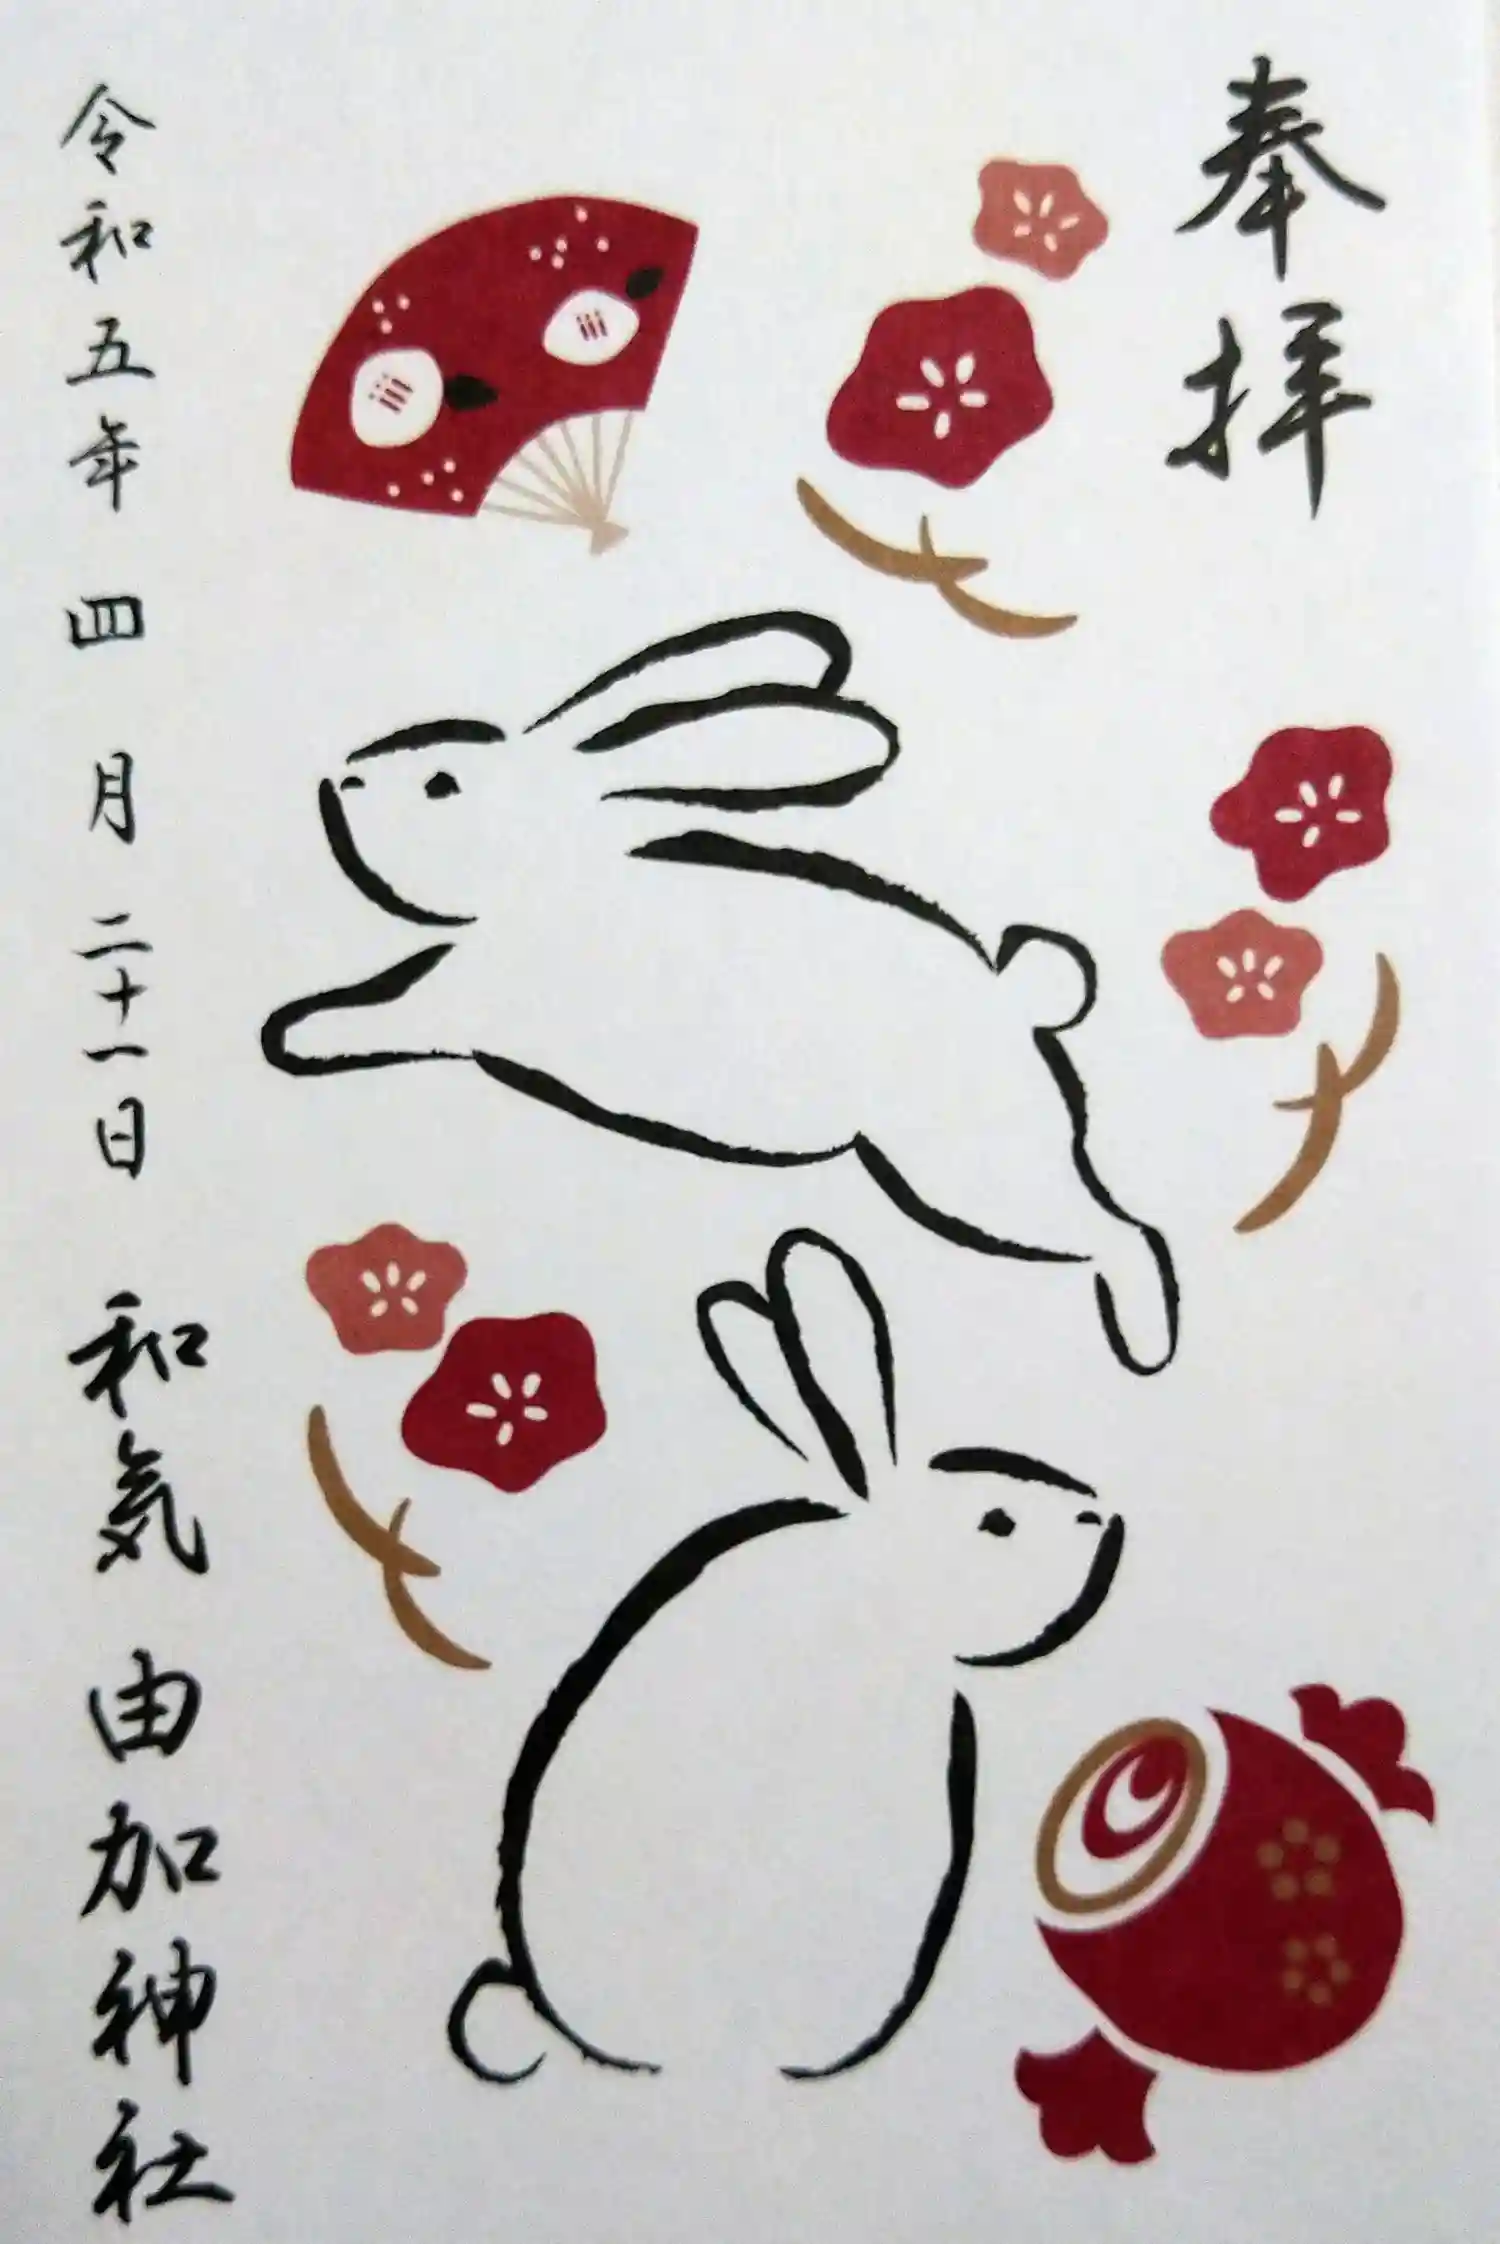 奉拝
令和五年四月二十一日 和気由加神社